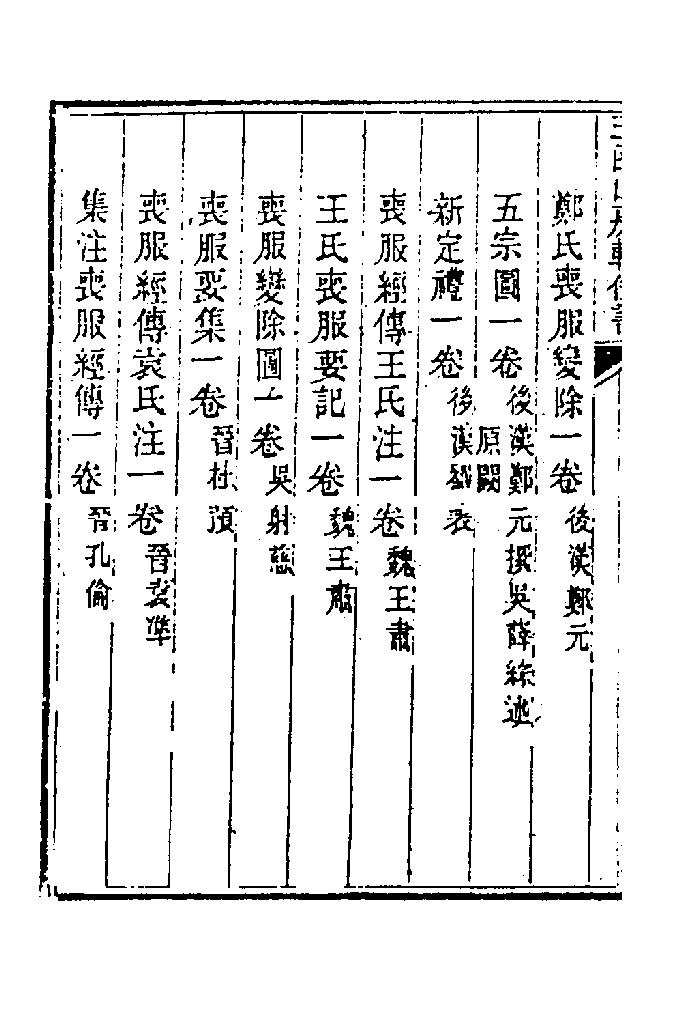 鄭氏喪服變除一卷 後漢鄭元
五宗圖一卷 後漢鄭元撰吳薛綜述 原闕
新定禮一卷 後漢劉表
喪服經傳王氏注一卷 魏王肅
王氏喪服要記一卷 魏王肅
喪服變除圖一卷 吳射慈
喪服要集一卷 晉杜預
喪服經傳袁氏注一卷 晉袁準
集注喪服經傳一卷 晉孔倫